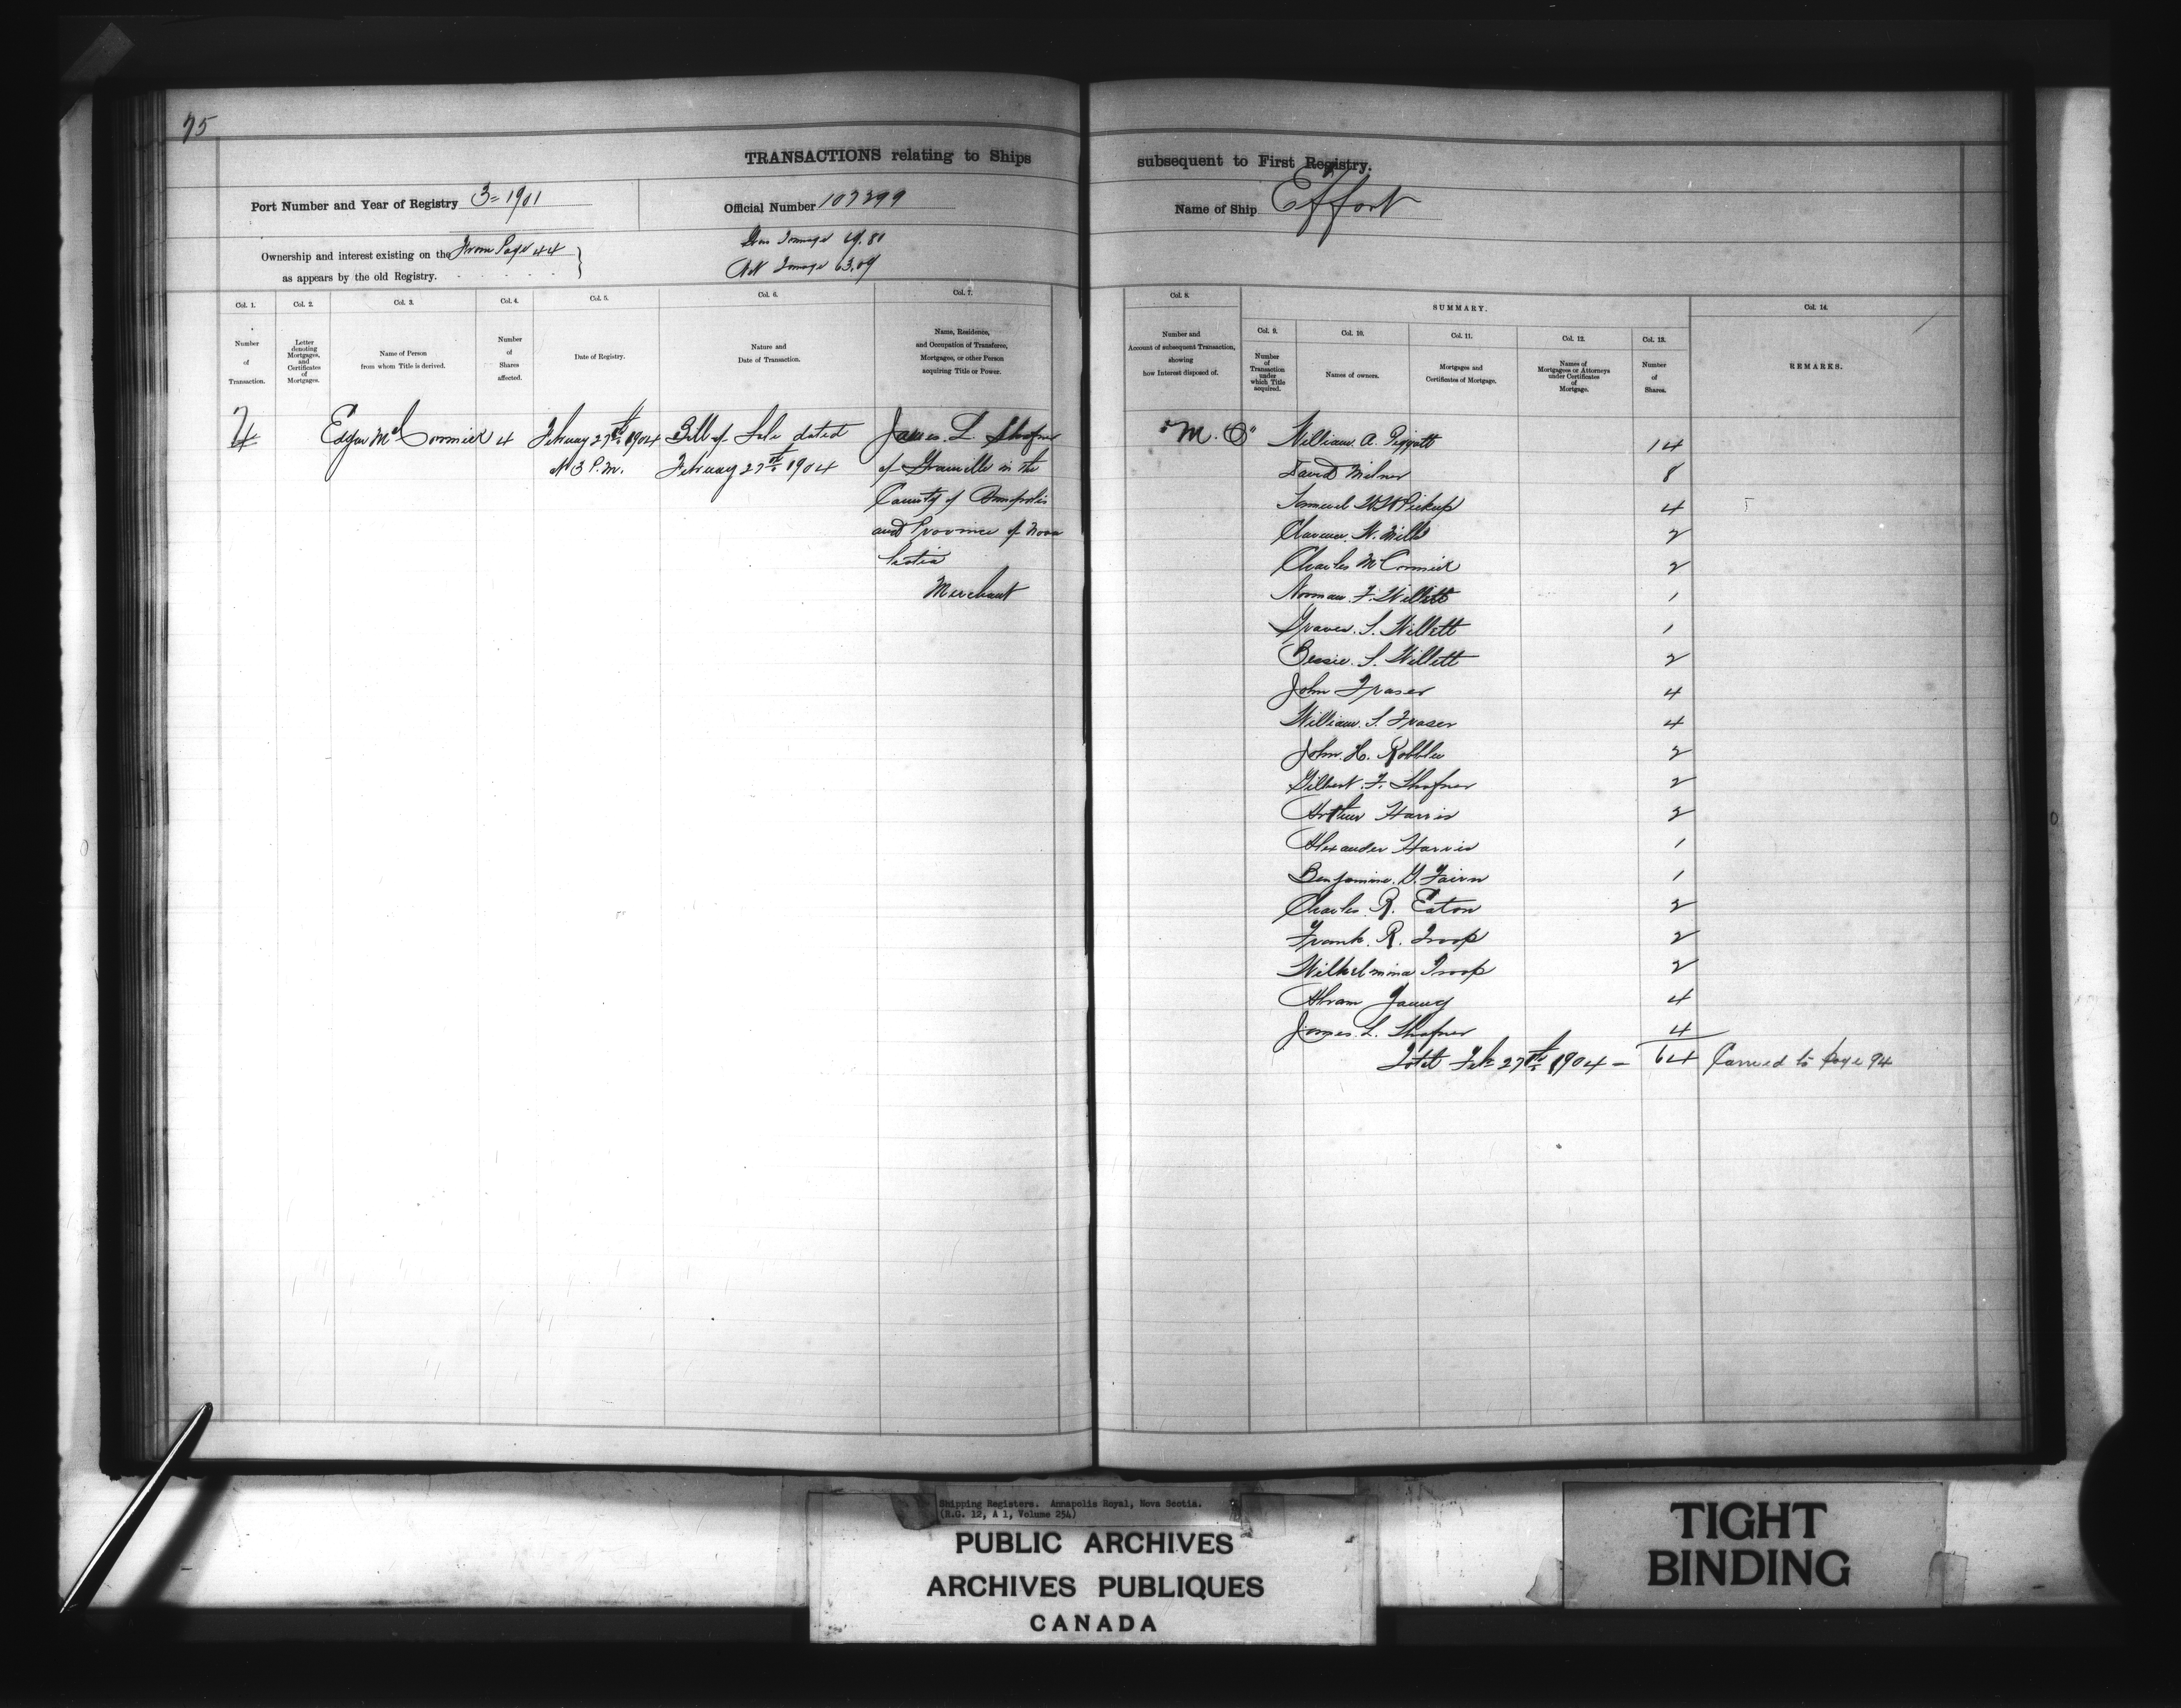 75
TRANSACTIONS relating to Ships subsequent to First Registry.
Port Number and Year of Registry 3=1901
Official Number 107299
Name of Ship Effort
Ownership and interest existing on the From Page 44
as appears by the old Registry.
Gross Tonnage
Net Tonnage 63.09
Col. 1.
Number
of
Transaction.
Col. 2.
Letter
denoting
Mortgages,
and
Certificates
of
Mortgages.
Col. 3.
Name of Person
from whom Title is derived.
Col. 4.
Number
of
Shares
affected.
Col. 5.
Date of Registry.
Col. 6.
Nature and
Date of Transaction.
Col. 7.
Name, Residence,
and Occupation of Transferee,
Mortgagee, or other Person
acquiring Title or Power.
Col. 8.
Number and
Account of subsequent Transaction,
showing
how Interest disposed of.
SUMMARY.
Col. 9.
Number
of
Transaction
under
which Title
acquired.
Col. 10.
Names of owners.
Col. 11.
Mortgages and
Certificates of Mortgage.
Col. 12.
Names of
Mortgagees or Attorneys
under Certificates
of
Mortgage.
Col. 13.
Number
of
Shares.
Col. 14.
REMARKS.
Edgar McCormick 4 February 27th 1904 Bill of Sale dated James L. Shafner
At 3 P.M. February 27th 1904 of Granville in the
County of Annapolis
and Province of Nova
Scotia
Merchant
"M.O" William A. Piggott 14
David Milner 8
Samuel W.W. Pickup 4
Clarence W. Mills 2
Charles McCormick 2
Norman F. Willett 1
Graves S. Willett 1
Bessie S. Willett 2
John Fraser 4
William S. Fraser 4
John H. Robblee 2
Gilbert F. Shafner 2
Arthur Harris 2
Alexander Harris 1
Benjamin G. Fairn 1
Charles R. Eaton 2
Frank R. Troop 2
Wilhelmina Troop 2
Abram Young 4
James L. Shafner 4
Total Feb 27th 1904 - 64 Carried to page 94
Shipping Registers. Annapolis Royal, Nova Scotia.
(R.G. 12, A 1, Volume 254)
PUBLIC ARCHIVES
ARCHIVES PUBLIQUES
CANADA
TIGHT
BINDING